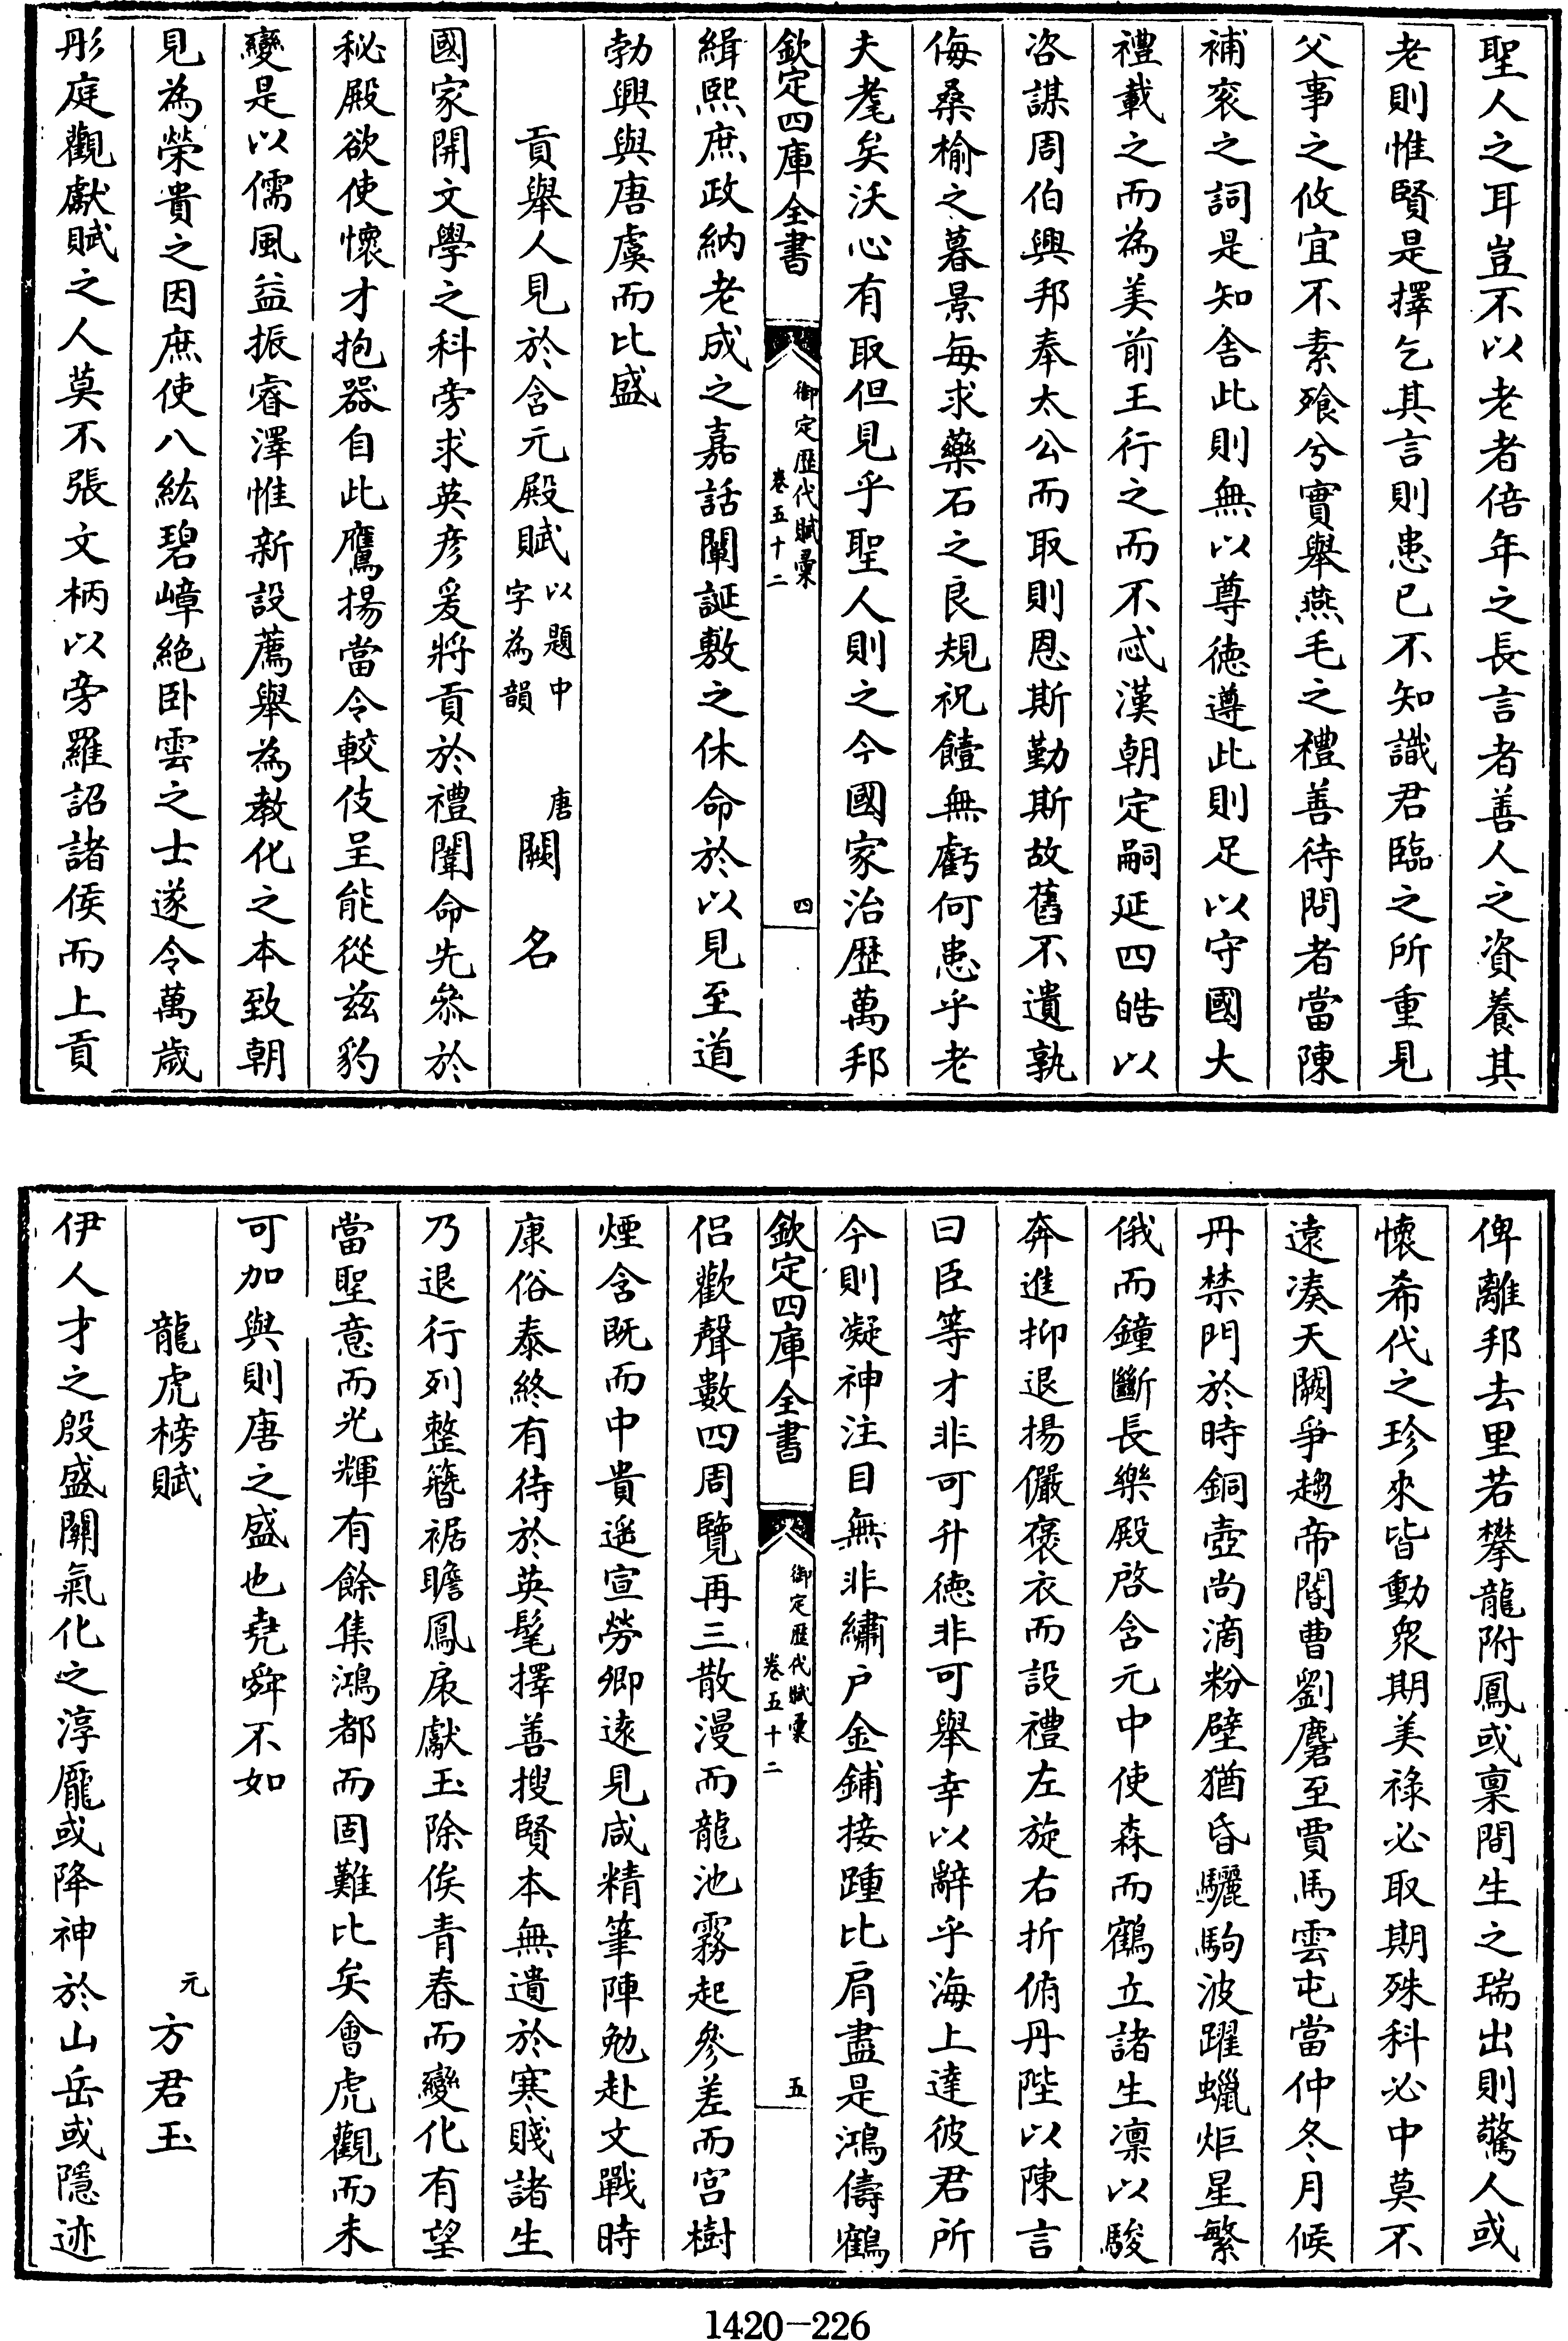 聖人之耳豈不以老者倍年之長言者善人之資養其
老則惟賢是擇乞其言則患已不知識君臨之所重見
父事之攸宜不素飱兮實舉燕毛之禮善待問者當陳
補衮之詞是知舍此則無以尊徳遵此則足以守國大
禮載之而為美前王行之而不忒漢朝定嗣延四皓以
咨謀周伯興邦奉太公而取則恩斯勤斯故舊不遺孰
侮桑榆之暮景每求藥石之良規祝饐無虧何患乎老
夫耄矣沃心有取但見乎聖人則之今國家治歴萬邦
欽定四庫全書
御定歴代賦彙
卷五十二
四
緝熙庶政納老成之嘉話闡誕敷之休命於以見至道
勃興與唐虞而比盛
貢舉人見於含元殿賦以題中字為韻 唐闕名
國家開文學之科旁求英彦爰將貢於禮闈命先叅於
秘殿欲使懷才抱器自此鷹揚當令較伎呈能從兹豹
變是以儒風益振睿澤惟新設薦舉為教化之本致朝
見為榮貴之因庶使八紘碧嶂絶卧雲之士遂令萬歳
彤庭觀獻賦之人莫不張文柄以旁羅詔諸侯而上貢
俾離邦去里若攀龍附鳳或稟間生之瑞出則驚人或
懷希代之珍來皆動衆期美祿必取期殊科必中莫不
遠凑天闕爭趨帝閽曹劉麏至賈馬雲屯當仲冬月候
丹禁門於時銅壺尚滴粉壁猶昏驪駒波躍蠟炬星繁
俄而鐘斷長樂殿啓含元中使森而鶴立諸生凛以駿
奔進抑退揚儼褒衣而設禮左旋右折俯丹陛以陳言
曰臣等才非可升徳非可舉幸以辭乎海上達彼君所
今則凝神注目無非繡户金鋪接踵比肩盡是鴻儔鶴
欽定四庫全書
御定歴代賦彙
卷五十二
五
侣歡聲數四周覽再三散漫而龍池霧起參差而宫樹
煙含既而中貴遥宣勞卿逺見咸精筆陣勉赴文戰時
康俗泰終有待於英髦擇善搜賢本無遺於寒賤諸生
乃退行列整簪裾瞻鳳扆獻玉除俟青春而變化有望
當聖意而光輝有餘集鴻都而固難比矣會虎觀而未
可加與則唐之盛也堯舜不如
龍虎榜賦 元方君玉
伊人才之殷盛關氣化之淳厖或降神於山岳或隠迹
1420-226